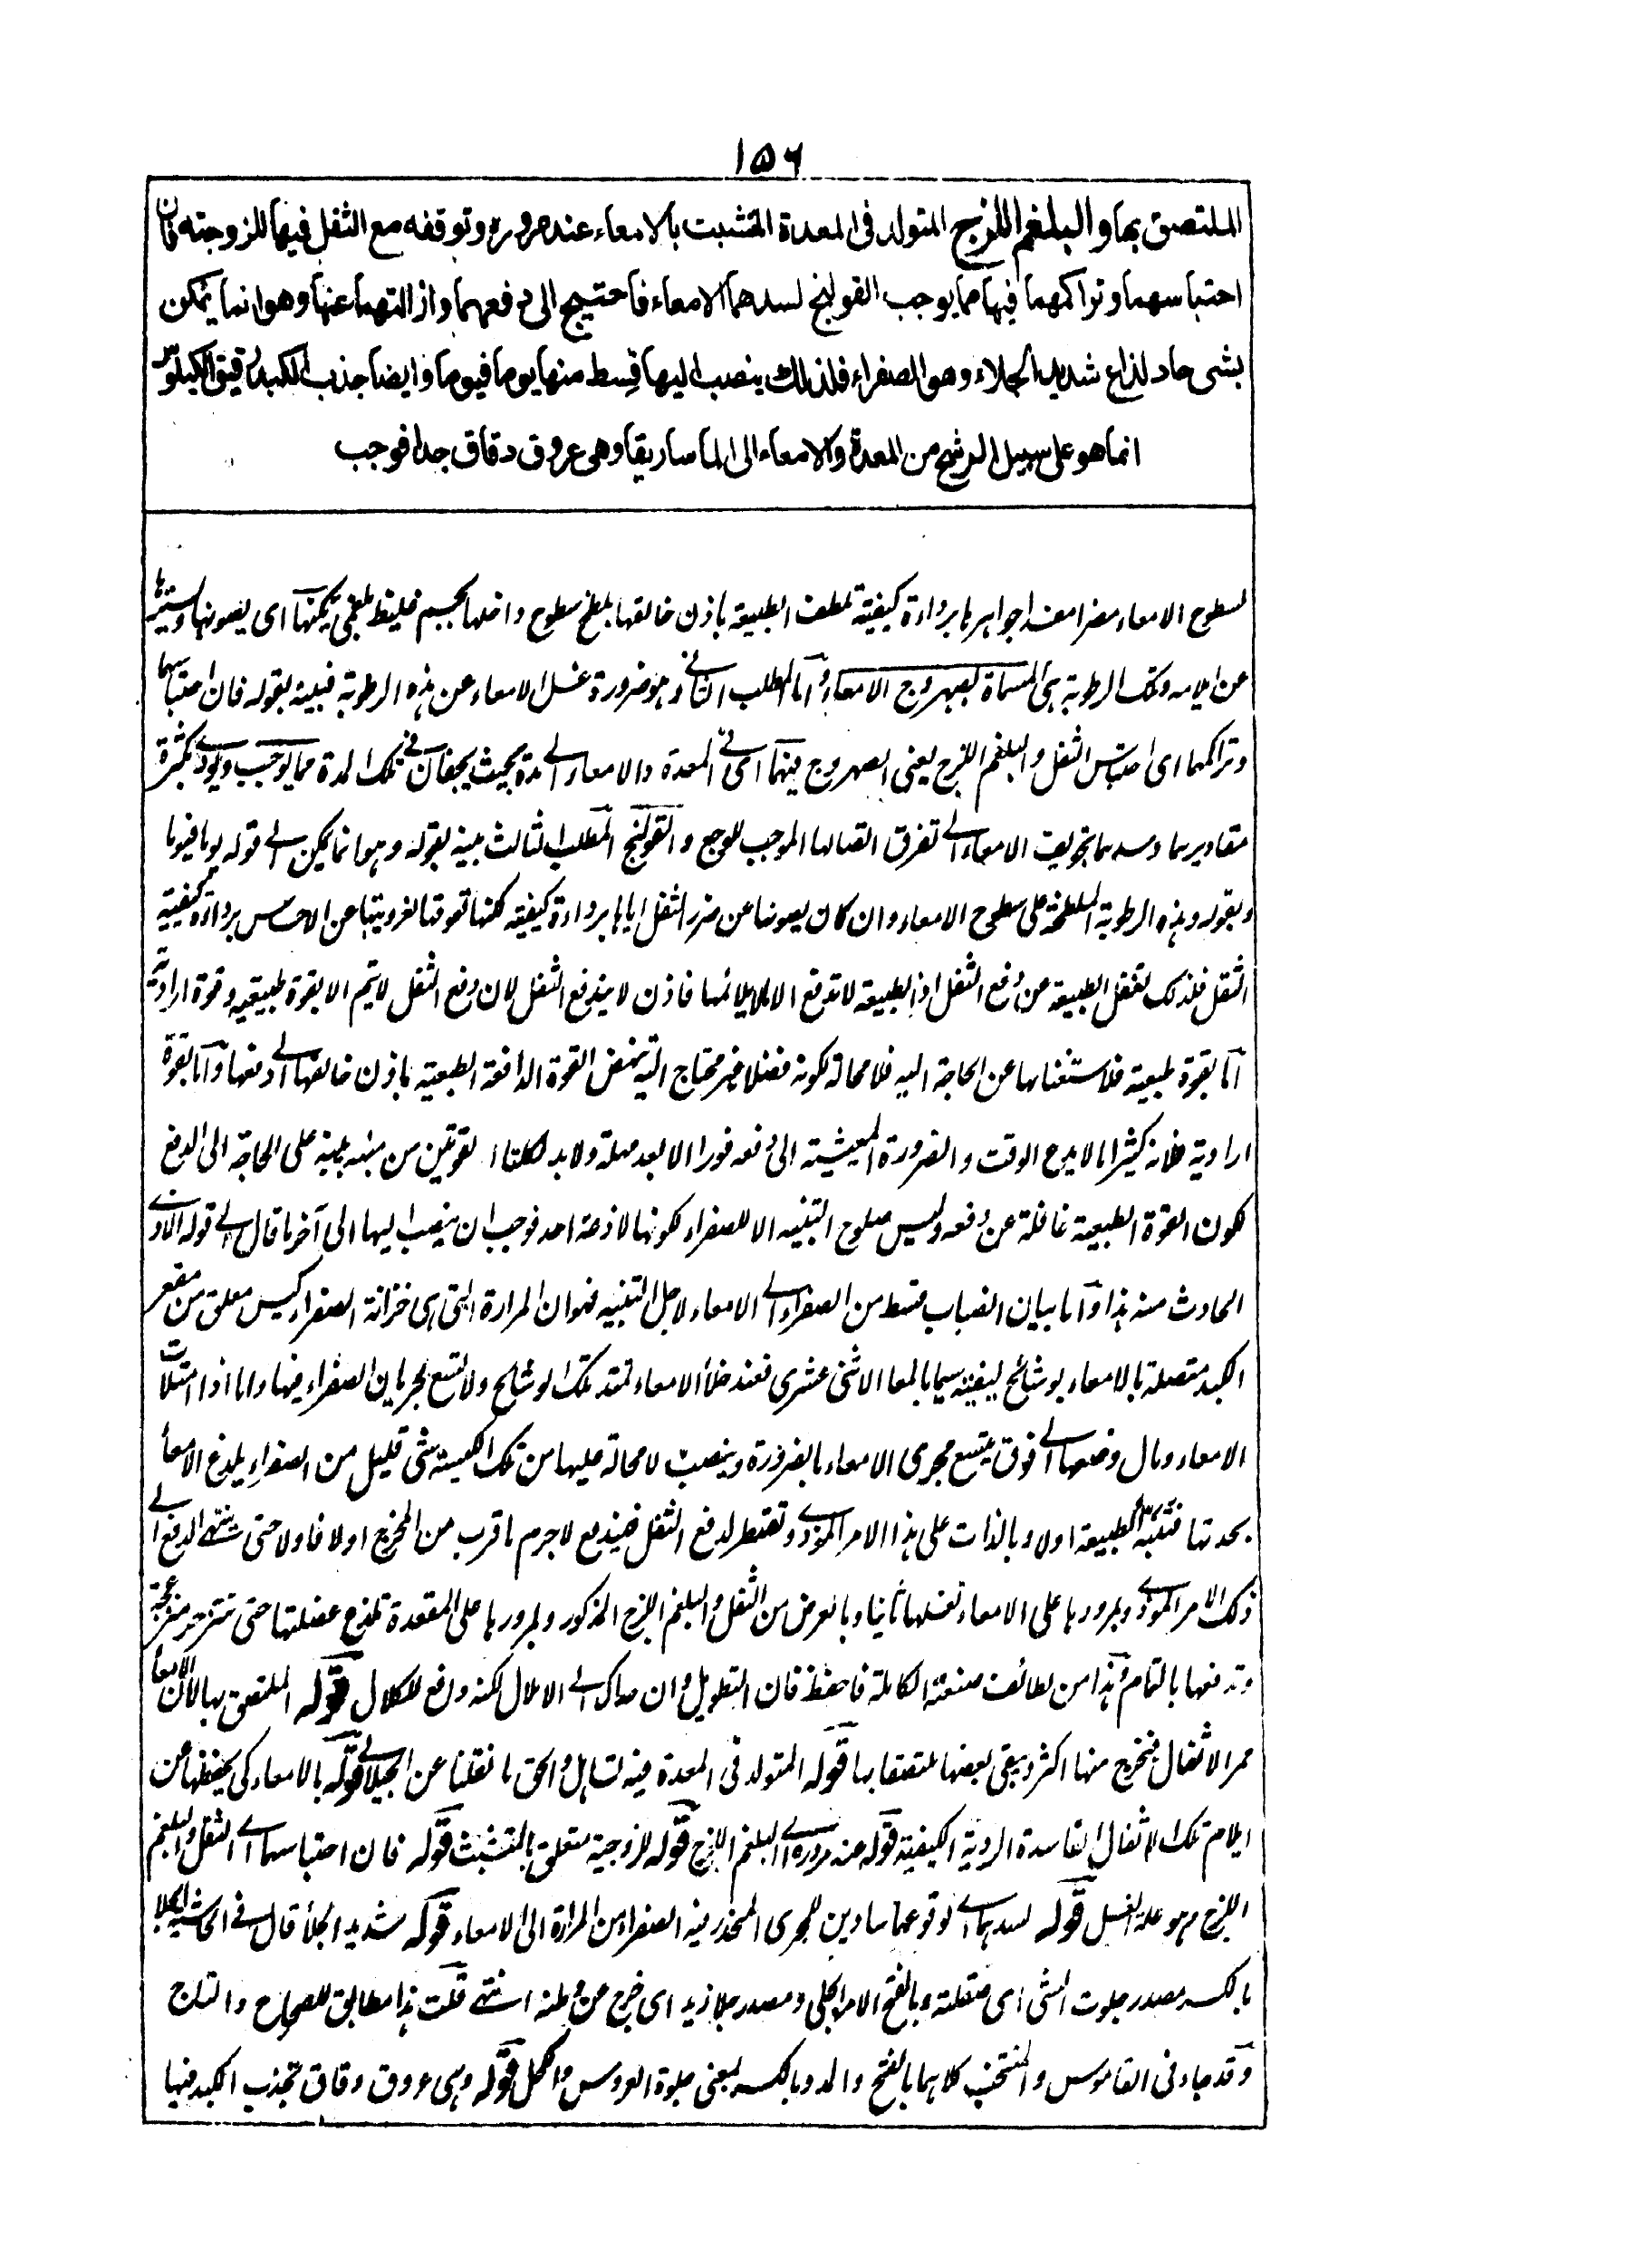 ١٥٦
الملتصق بها والبلغم اللزج المتولد فى المعدة المتشبث بالامعاء عند مروره وتوقفه مع الثفل فيها للزوجته فان
احتباسهما وتراكمهما فيها مما يوجب القولنج لسدهما الامعاء فاحتيج الى دفعهما وازالتهما عنها وهو انما يمكن
بشى حاد لذاع شديد الجلاء وهو الصفراء فلذلك ينصب اليها قسط منها يوما فيوما وايضا جذب الكبد رقيق الكيلوس
انما هو على سبيل الرشح من المعدة والامعاء الى الماساريقا وهى عروق دقاق جدا فوجب
لسطوح الامعاء مضرا جواهرها برداءة كيفية تلطف الطبيعة باذن خالقها بلطخ سطوح داخلها بجسم غليظ بلغمى يكنها اى يصونها ويسترها
عن ايلامه وتلك الرطوبة هى المسماة بصهروج الامعاء واما المطلب الثانى وهو ضرورة غسل الامعاء عن هذه الرطوبة فبينه بقوله فان احتباسهما
وتراكمهما اى احتباس الثفل والبلغم اللزج يعنى الصهروج فيهما اى فى المعدة والامعاء الى مدة بحيث يجفان فى تلك المدة مما يوجب ويودى بكثرة
مقاديرهما وسدهما تجويف الامعاء الى تفرق اتصالها الموجب للوجع والقولنج المطلب الثالث بينه بقوله وهو انما يمكن الى قوله يوما فيوما
وبقوله وهذه الرطوبة الملطخة على سطوح الامعاء وان كان يصونها عن ضرر الثفل اياها برداءة كيفيته لكنها تعوقها لغرويتها عن الاحساس برداءة كيفية
الثفل فلذلك تغفل الطبيعة عن دفع الثفل اذ الطبيعة لا تدفع الا ما لا يلائمها فاذن لا يندفع الثفل لان دفع الثفل لا يتم الا بقوة طبيعية وقوة ارادية
اما بقوة طبيعية فلاستغنائها عن الحاجة اليه فلا محالة لكونه فضلا غير محتاج اليه تنهض القوة الدافعة الطبيعية باذن خالقها الى دفعها واما بقوة
ارادية فلانه كثيرا ما لا يدع الوقت والضرورة المعيشية الى دفعه فورا الا بعد مهلة ولا بد لكلتا القوتين من منبه ينبه على الحاجة الى الدفع
لكون القوة الطبيعية غافلة عن دفعه وليس صلوح التنبيه الا للصفراء لكونها لاذعة احد فوجب ان ينصب اليها الى آخر ما قال الى قوله الاذى
الحادث منه هذا واما بيان انصباب قسط من الصفراء الى الامعاء لاجل التنبيه فهو ان المرارة التى هى خزانة الصفراء كيس معلق من مقعر
الكبد متصلة بالامعاء بوشائح ليفية سيما بالمعا الاثنى عشرى فعند خلأ الامعاء تمتد تلك الوشايح ولا تتسع لجريان الصفراء فيها واما اذا امتلات
الامعاء ومال وضعها الى فوق يتسع مجرى الامعاء بالضرورة وينصب لا محالة عليها من تلك الكيسة شى قليل من الصفراء يلذع الامعأ
بحدتها فتنبه الطبيعة اولا وبالذات على هذا الامر الموذى وتضطر لدفع الثفل فيندفع لاجرم ما قرب من المخرج اولا فاولا حتى ينتهى الدفع الى
ذلك الامر الموذى وبمرورها على الامعاء تغسلها ثانيا وبالعرض من الثفل والبلغم اللزج المذكور وبمرورها على المقعدة تلذع عضلتها حتى تنزجر منزعجة
وتدفعها بالتمام وهذا من لطائف صنعته الكاملة فاحفظ فان التطويل وان ساك الى الاملال لكنه دافع للكلال قوله الملتصق بها لان الامعأ
ممر الاثفال فتخرج منها اكثر ويبقى بعضها ملتصقا بها قوله المتولد فى المعدة فيه تساهل والحق ما نقلنا عن الجيلانى قوله بالامعاء كى يحفظها عن
ايلام تلك الاثفال الفاسدة الردية الكيفية قوله عند مروره اى البلغم اللزج قوله للزوجته متعلق بالتشبث قوله فان احتباسهما اى الثفل والبلغم
اللزج وهو علة الغسل قوله لسدهما اى لوقوعهما سادين للمجرى المنحدر فيه الصفراء من المرارة الى الامعاء قوله شديد الجلأ قال فى الحاشية الجلا
بالكسر مصدر جلوت الشى اى صقلته وبالفتح الامر الجلى ومصدر جلا زيد اى خرج من وطنه انتهى قلت هذا مطابق للصحاح والتاج
وقد جاء فى القاموس والمنتخب كلاهما بالفتح والمد وبالكسر بمعنى جلوة العروس والكحل قوله وهى عروق دقاق تجذب الكبد فيها